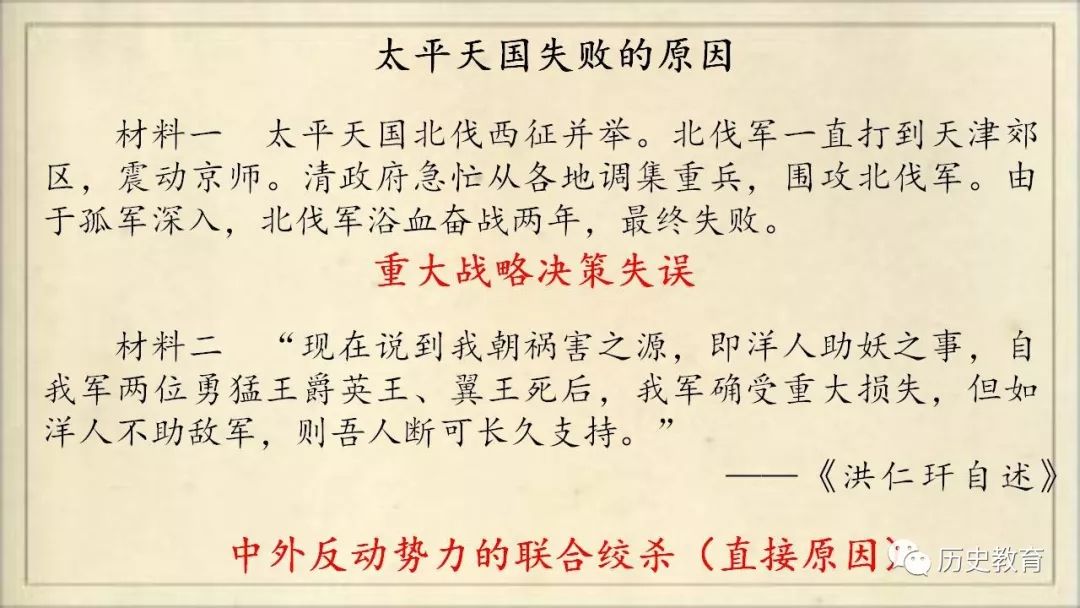 太平天国失败的原因
材料一 太平天国北伐西征并举。北伐军一直打到天津郊
区，震动京师。清政府急忙从各地调集重兵，围攻北伐军。由
于孤军深入，北伐军浴血奋战两年，最终失败。
重大战略决策失误
材料二 “现在说到我朝祸害之源，即洋人助妖之事，自
我军两位勇猛王爵英王、翼王死后，我军确受重大损失，但如
洋人不助敌军，则吾人断可长久支持。”
——《洪仁玕自述》
中外反动势力的联合绞杀（直接原因）
历史教育